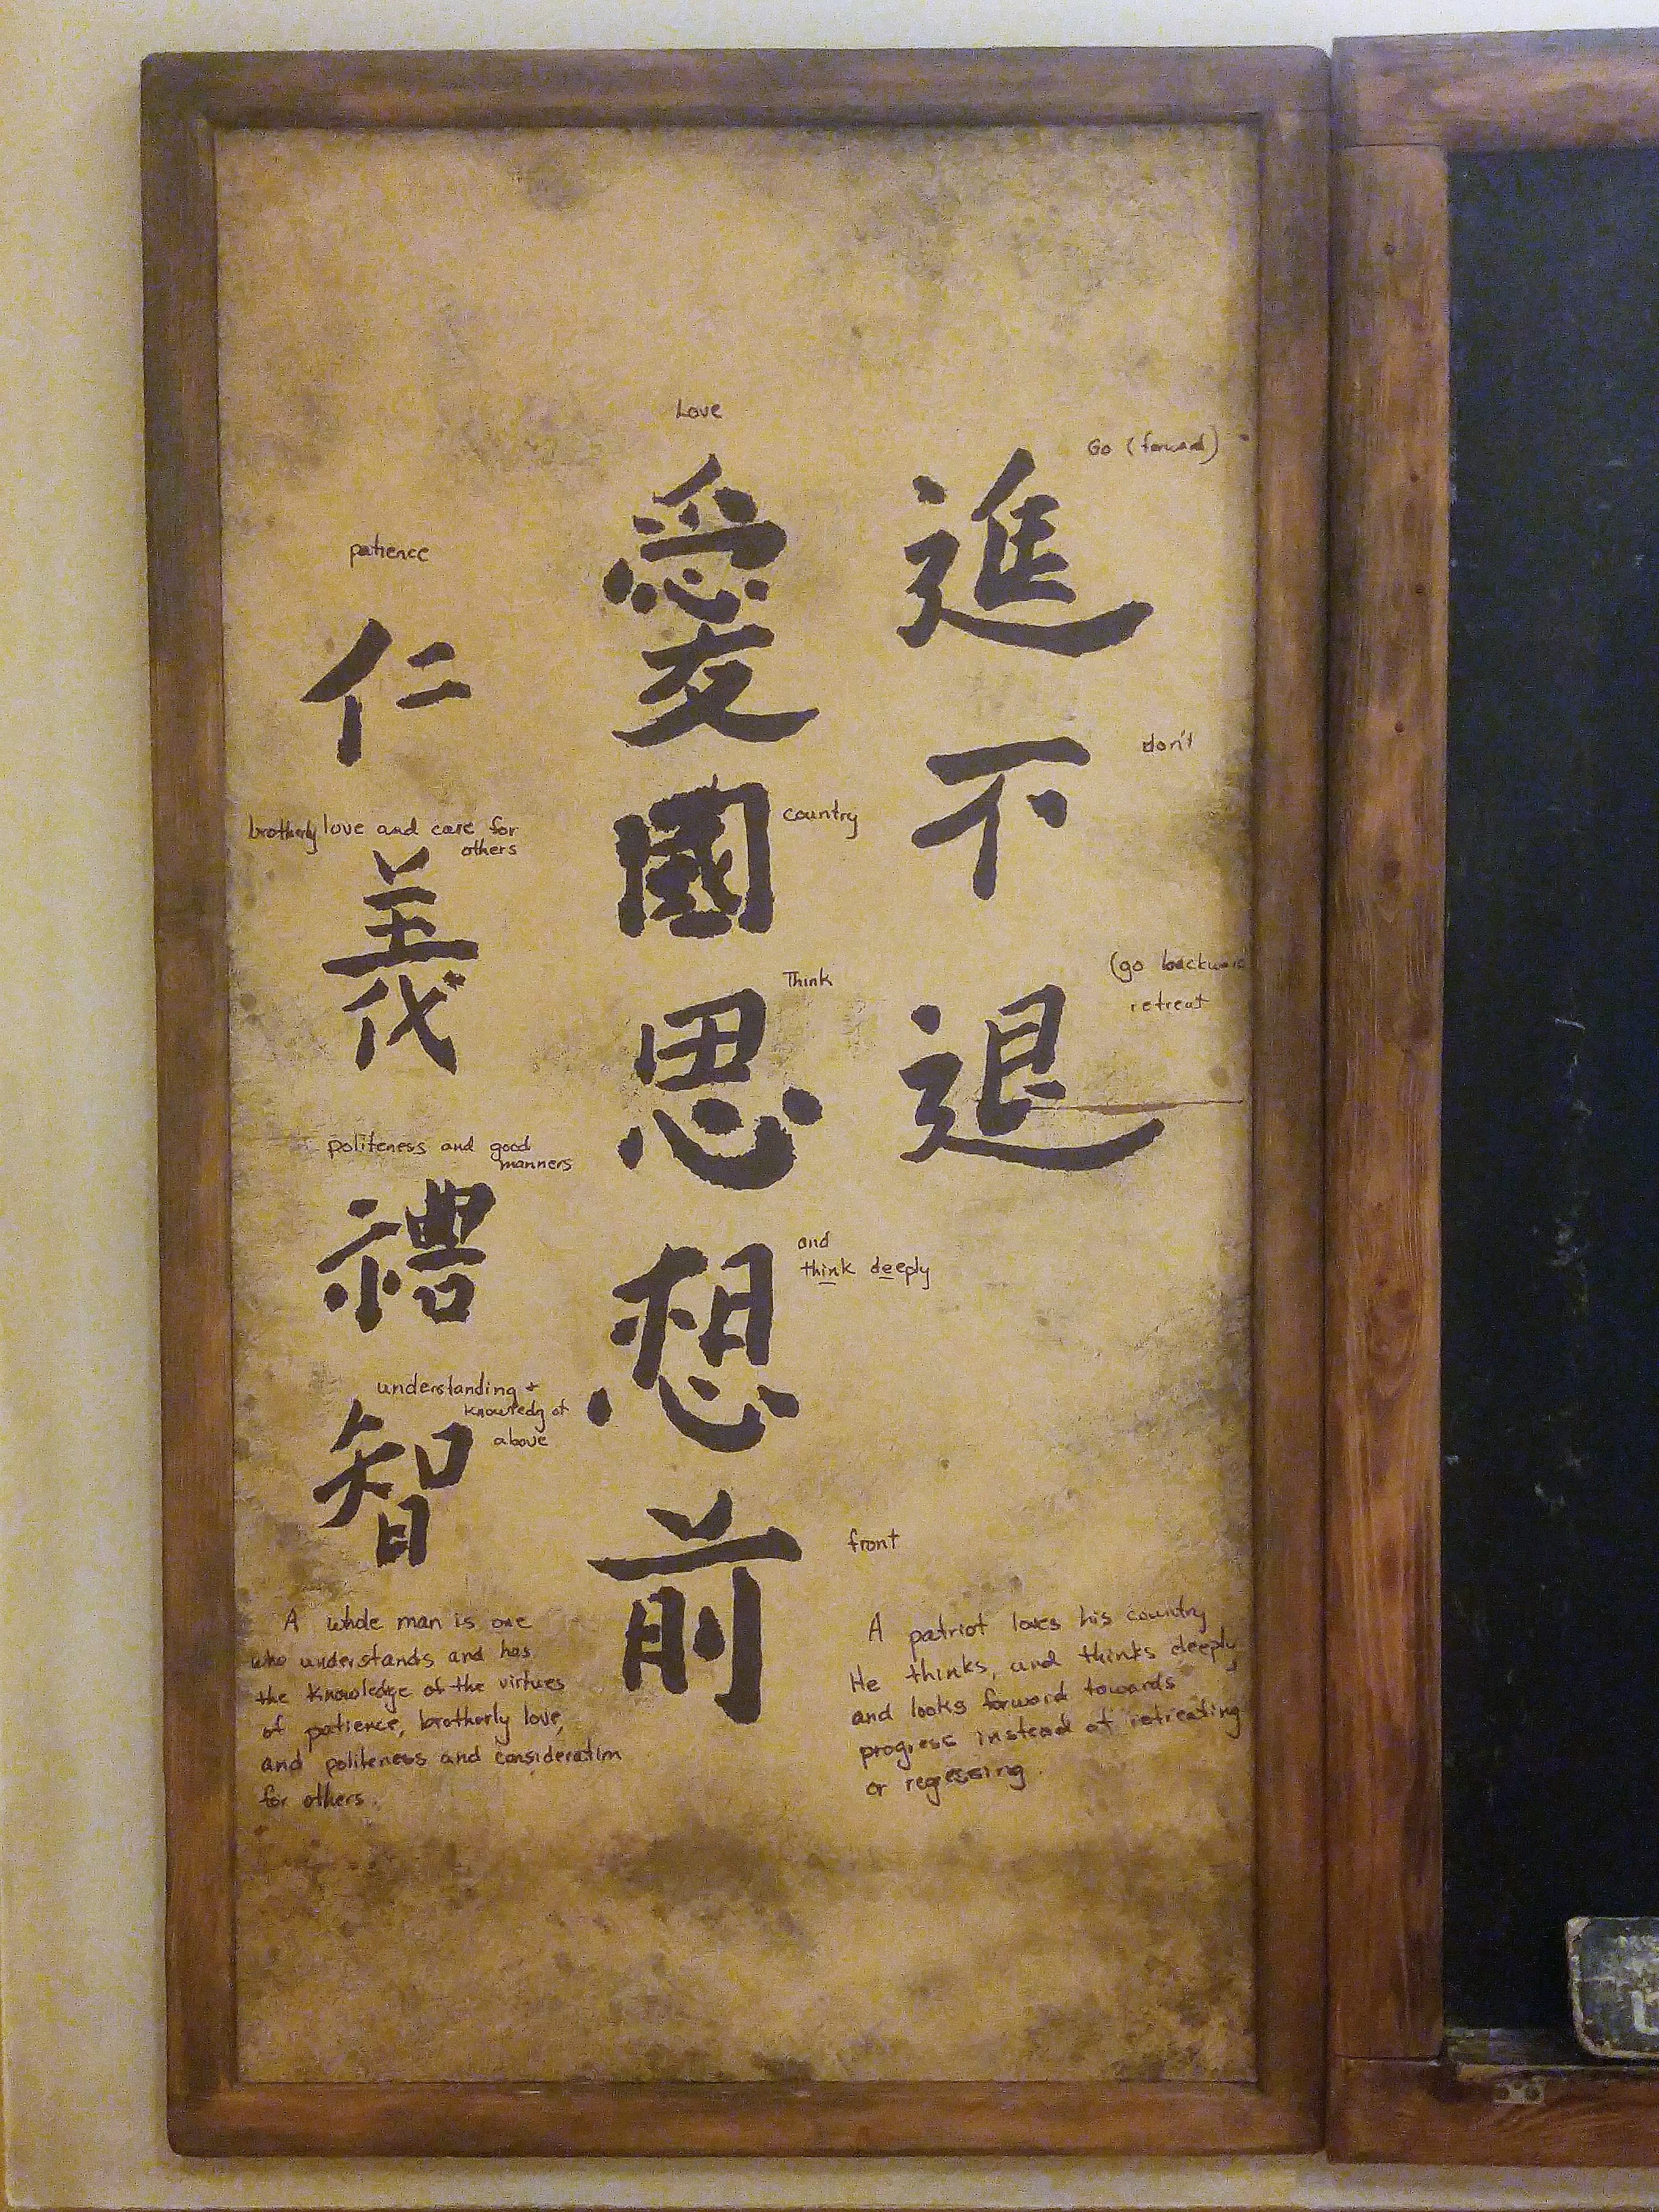 Love
愛
國
country
思
Think
想
and
think deeply
前
front
進
Go (forward)
不
don't
退
(go backward
retreat
patience
仁
brotherly love and care for
others
義
politeness and good
manners
禮
understanding +
knowledg of
above
智
A whole man is one
who understands and has
the knowledge of the virtues
of patience, brotherly love,
and politeness and consideration
for others.
A patriot loves his country
He thinks, and thinks deeply
and looks forward towards
progress instead of retreating
or regessing.